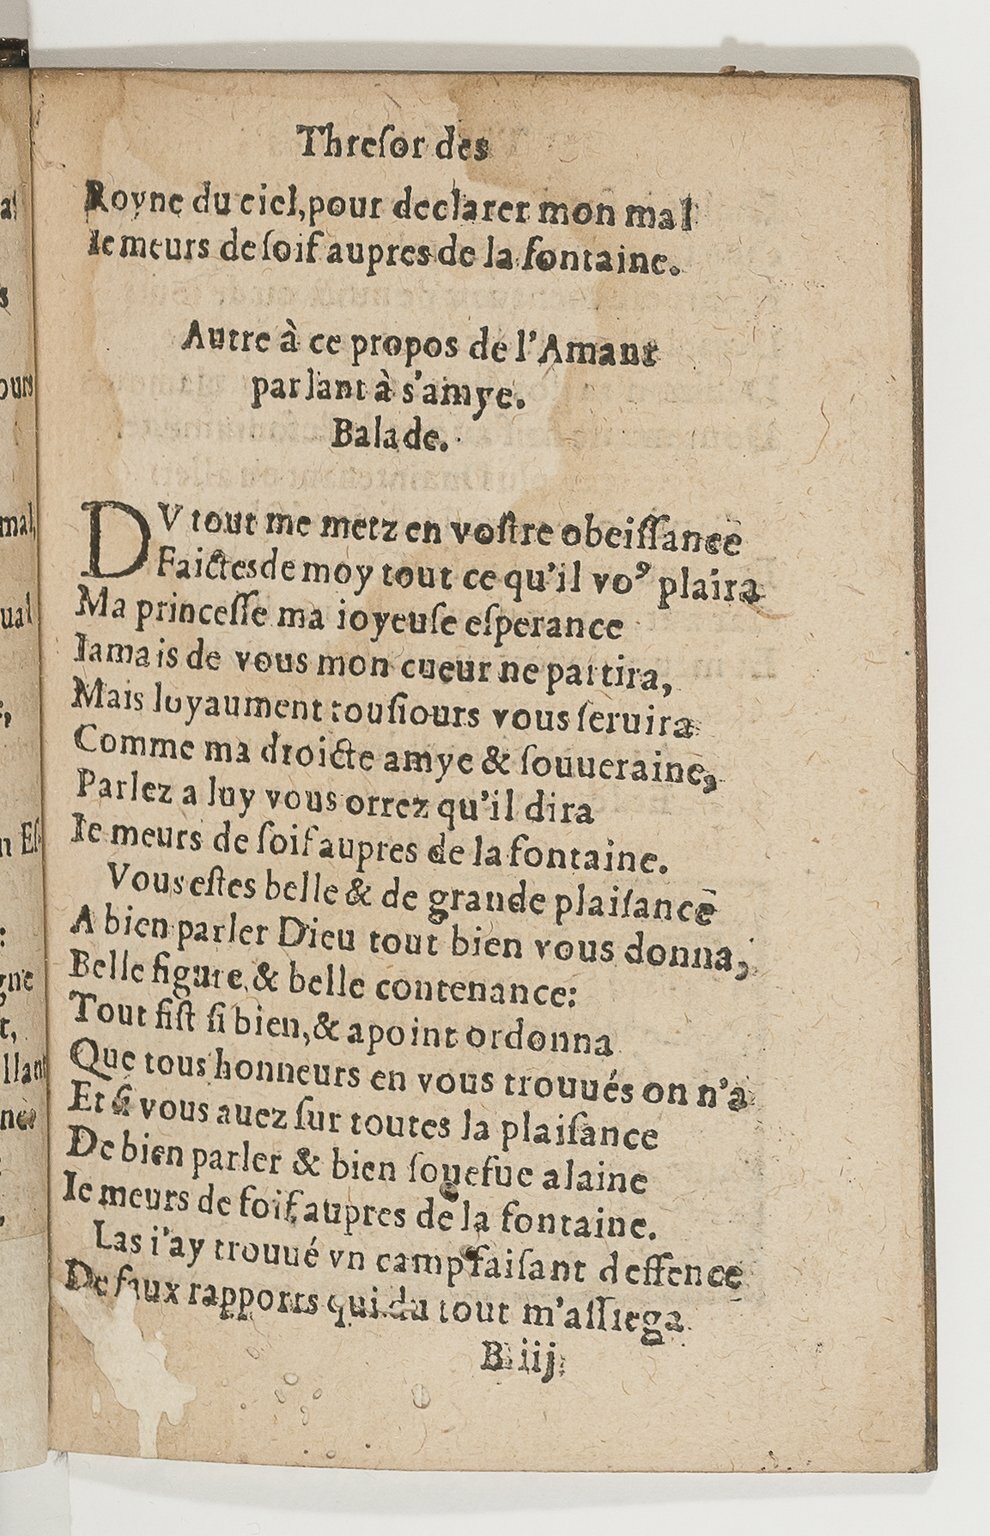 Threſor des
Royne du ciel, pour declarer mon mal
Ie meurs de ſoif aupres de la fontaine.
Autre à ce propos de l'Amant
parlant à s'amye.
Balade.
DV tout me metz en voſtre obeiſſance
Faictes de moy tout ce qu'il voꝰ plaira
Ma princeſſe ma ioyeuſe eſperance
Iamais de vous mon cueur ne partira,
Mais loyaument touſiours vous ſeruira
Comme ma droicte amye & ſouueraine,
Parlez a luy vous orrez qu'il dira
Ie meurs de ſoif aupres de la fontaine.
Vous eſtes belle & de grande plaiſance
A bien parler Dieu tout bien vous donna,
Belle figure, & belle contenance:
Tout fiſt ſi bien, & apoint ordonna
Que tous honneurs en vous trouués on n'a
Et ſi vous auez ſur toutes la plaiſance
De bien parler & bien ſouefue alaine
Ie meurs de ſoif aupres de la fontaine.
Las i'ay trouué vn camp faiſant deffence
De faux rapports qui du tout m'aſſiega
B iij